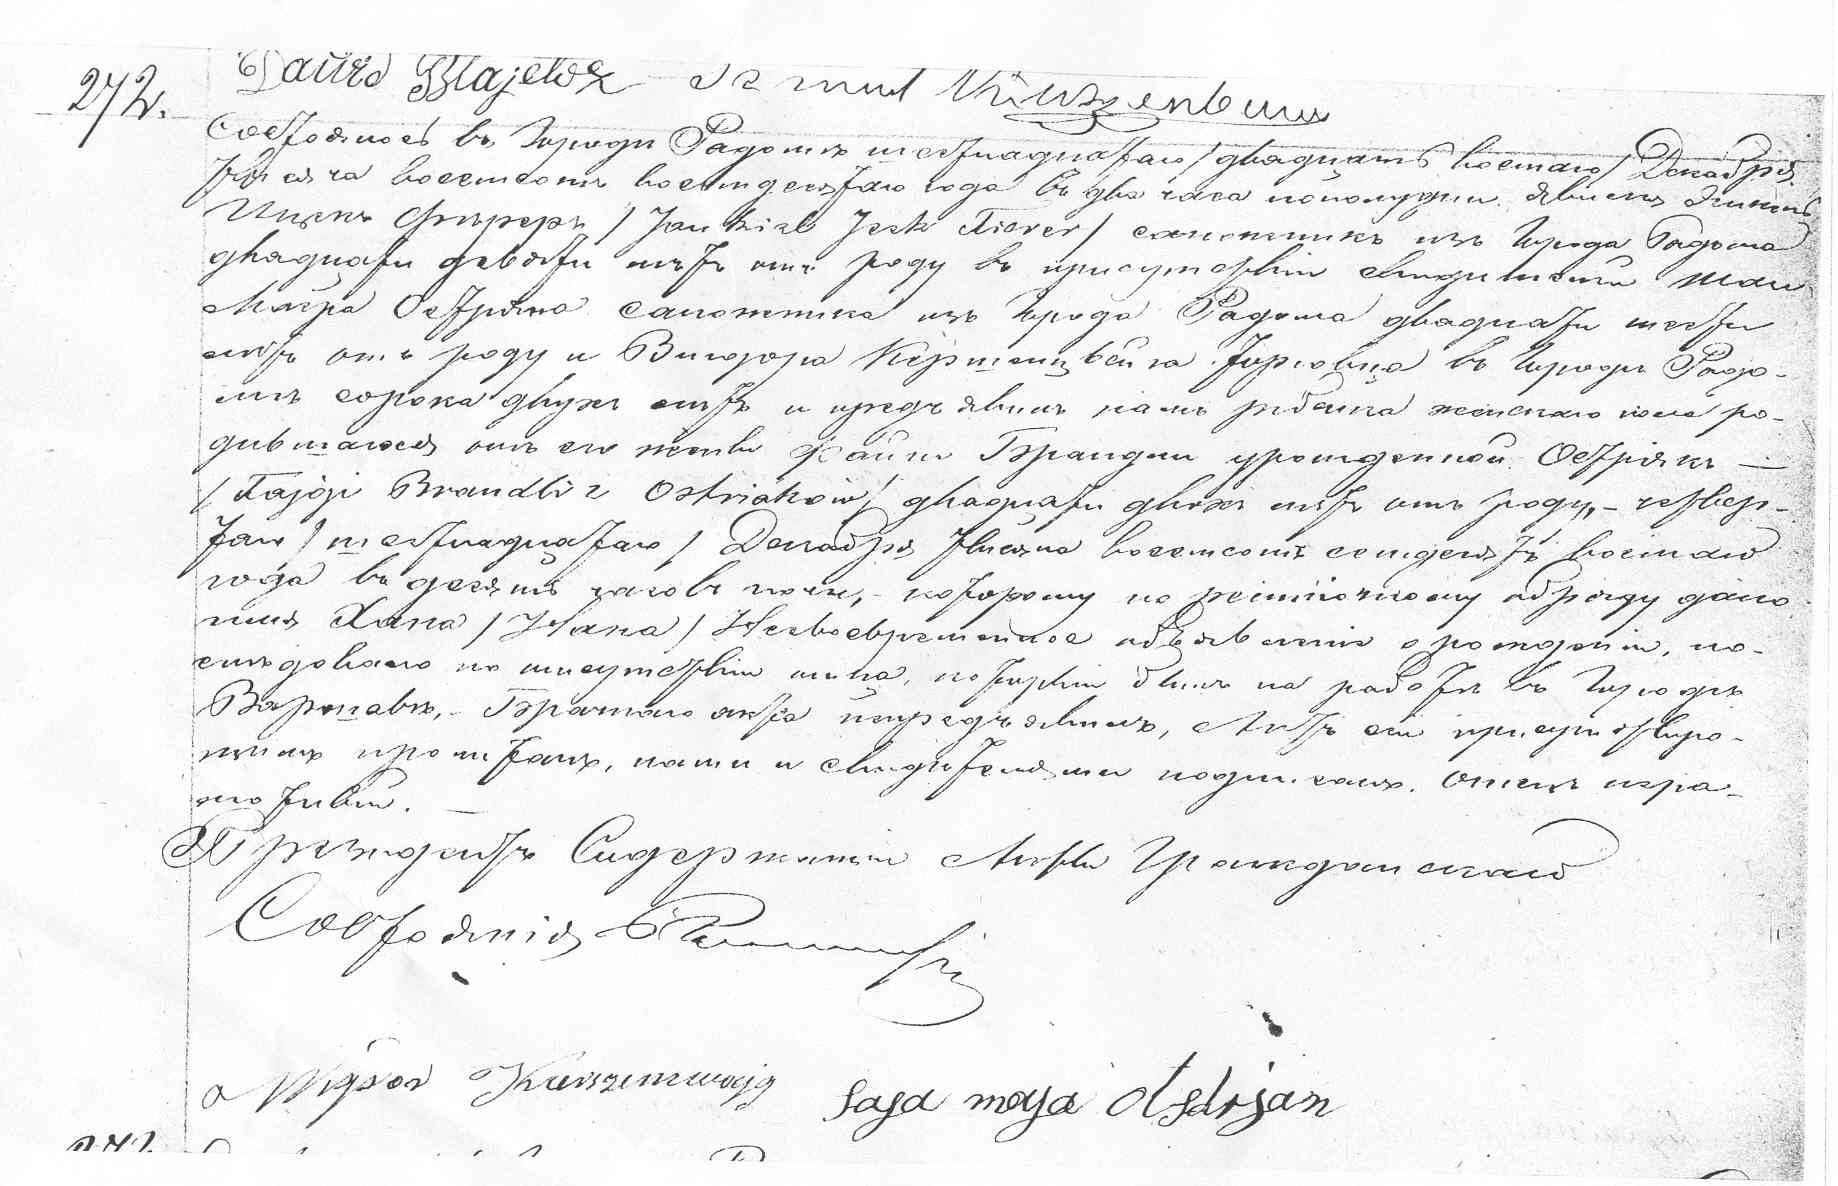 272.
Состоялось въ городѣ Радомѣ шестнадцатаго /двадцать восьмаго/ Декабря
тысяча восемсотъ восемдесятаго года въ два часа пополудни. Явился
Ицекъ Фиреръ / Jankiel Jcek Firer / сапожникъ изъ города Радома
двадцати девяти лѣтъ отъ роду въ присутствіи свидѣтелей
Маера Острiяна сапожника изъ города Радома двадцати шести
лѣтъ отъ роду и Вигдора Киршенцвейга торговца въ городѣ Радо-
мѣ сорока двухъ лѣтъ и предъявилъ намъ ребенка женскаго пола ро-
дившагося отъ его жены Файги Брандли урожденной Острiякъ —
/ Fajgi Brandli z Ostriaków / двадцати двухъ лѣтъ отъ роду, – четвер-
таго / шестнадцатаго / Декабря тысяча восемсотъ семдесятъ восьмаго
года въ десять часовъ ночи, – которому по религіозному обряду дано
имя Хана / Hana / Несвоевременное объявленіе о рожденіи, по-
слѣдовало по отсутствіи отца, который былъ на работѣ въ городѣ
Варшавѣ, – Брачнаго акта непредъявилъ, Актъ сей присутствую-
щимъ прочитанъ, нами и свидѣтелями подписанъ. Отецъ негра-
мотный. —
Президентъ Содержащій Акты Гражданскаго
Состоянія
Wigdor Kierszencwajg Saja Maja Ostrjan